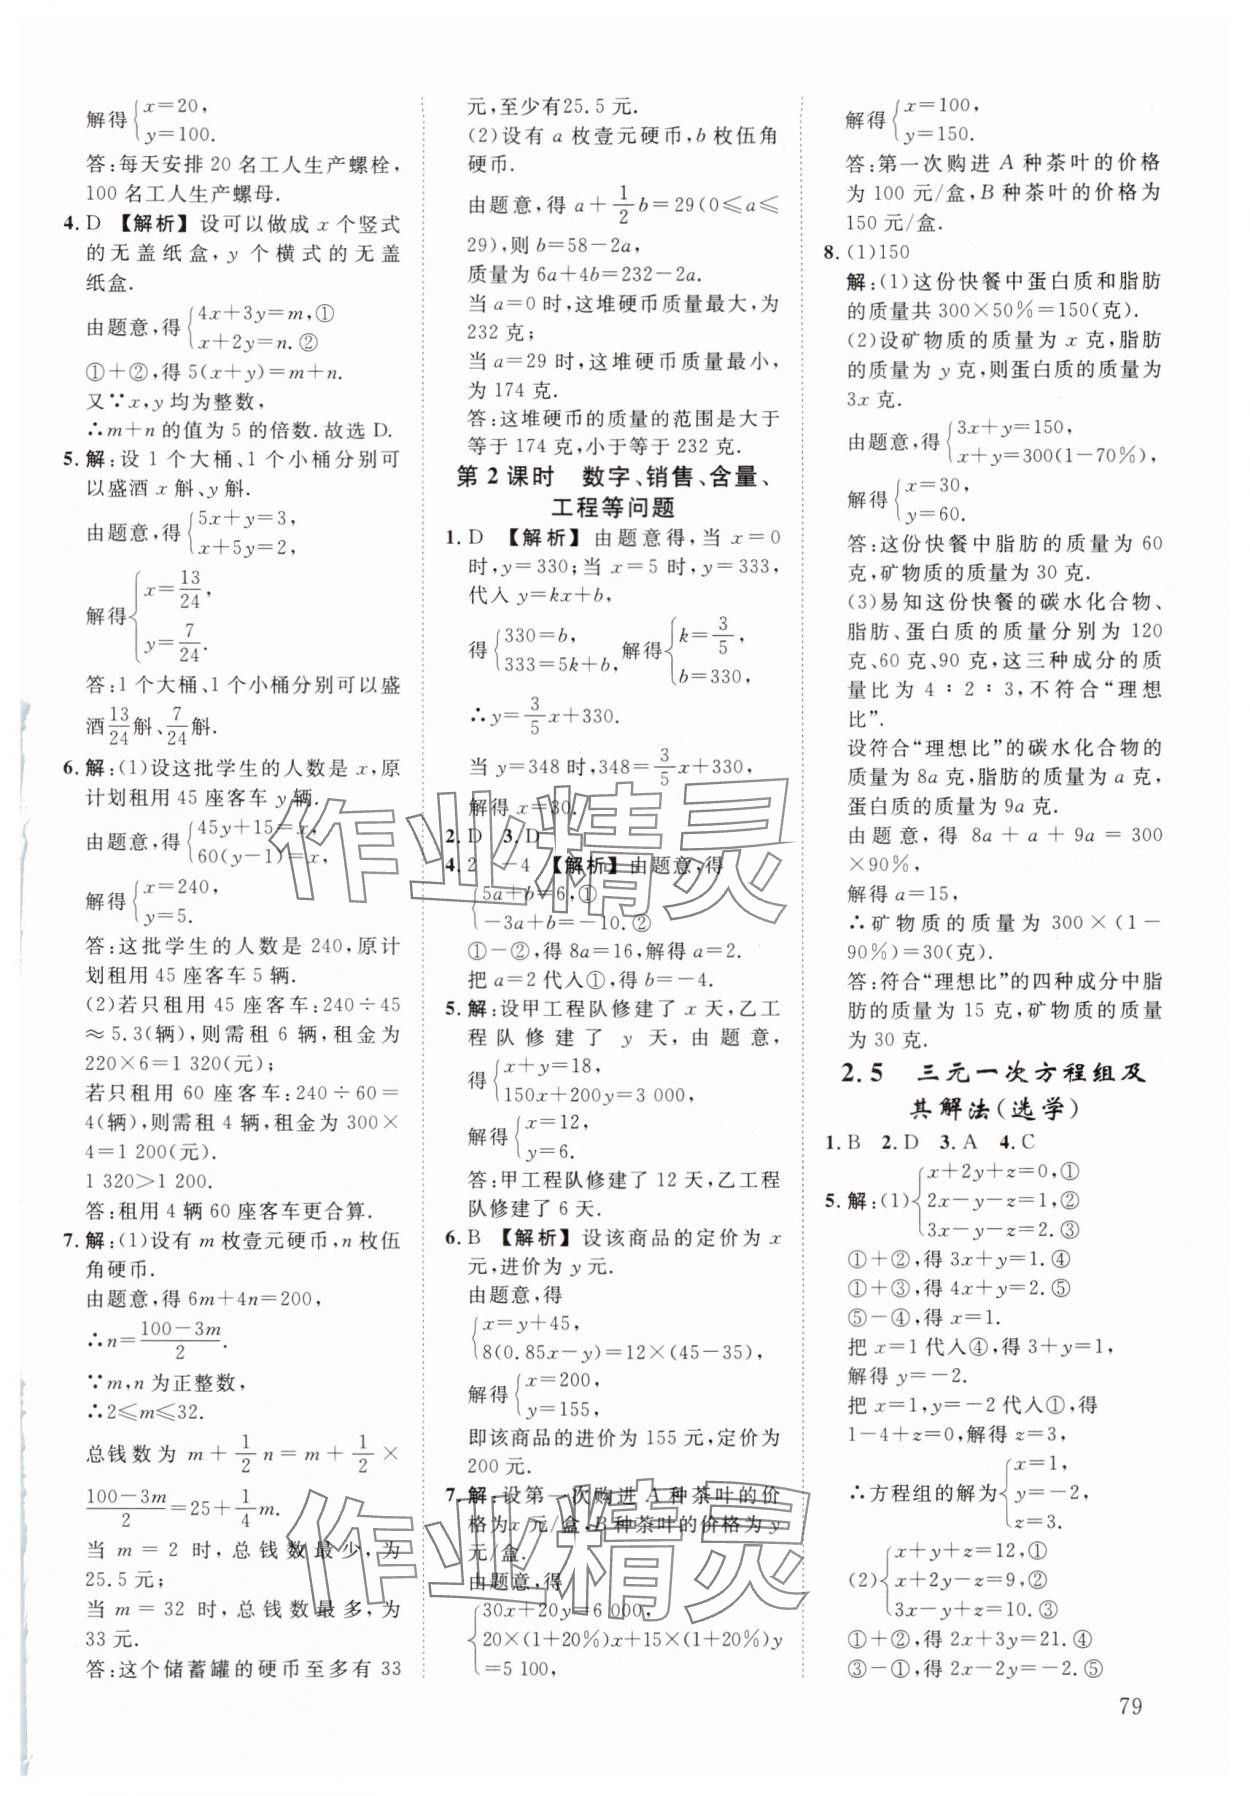 解得{x=20,
y=100.
答:每天安排 20 名工人生产螺栓,
100 名工人生产螺母.
4. D 【解析】设可以做成 x 个竖式
的无盖纸盒,y 个横式的无盖
纸盒.
由题意,得{4x+3y=m,①
x+2y=n.②
①+②,得 5(x+y)=m+n.
又∵x,y 均为整数,
∴m+n 的值为 5 的倍数.故选 D.
5. 解:设 1 个大桶、1 个小桶分别可
以盛酒 x 斛、y 斛.
由题意,得{5x+y=3,
x+5y=2,
解得{x=13/24,
y=7/24.
答:1 个大桶、1 个小桶分别可以盛
酒13/24斛、7/24斛.
6. 解:(1)设这批学生的人数是 x,原
计划租用 45 座客车 y 辆.
由题意,得{45y+15=x,
60(y-1)=x,
解得{x=240,
y=5.
答:这批学生的人数是 240,原计
划租用 45 座客车 5 辆.
(2)若只租用 45 座客车:240÷45
≈5.3(辆),则需租 6 辆,租金为
220×6=1 320(元);
若只租用 60 座客车:240÷60=
4(辆),则需租 4 辆,租金为 300×
4=1 200(元).
1 320>1 200.
答:租用 4 辆 60 座客车更合算.
7. 解:(1)设有 m 枚壹元硬币,n 枚伍
角硬币.
由题意,得 6m+4n=200,
∴n=100-3m/2.
∵m,n 为正整数,
∴2≤m≤32.
总钱数为 m+1/2n=m+1/2×
100-3m/2=25+1/4m.
当 m=2 时,总钱数最少,为
25.5 元;
当 m=32 时,总钱数最多,为
33 元.
答:这个储蓄罐的硬币至多有 33
元,至少有25.5 元.
(2)设有 a 枚壹元硬币,b 枚伍角
硬币.
由题意,得 a+1/2b=29(0≤a≤
29),则 b=58-2a,
质量为 6a+4b=232-2a.
当 a=0 时,这堆硬币质量最大,为
232 克;
当 a=29 时,这堆硬币质量最小,
为 174 克.
答:这堆硬币的质量的范围是大于
等于 174 克,小于等于 232 克.
第 2 课时 数字、销售、含量、
工程等问题
1. D 【解析】由题意得,当 x=0
时,y=330;当 x=5 时,y=333,
代入 y=kx+b,
得{330=b,
333=5k+b,
解得{k=3/5,
b=330,
∴y=3/5x+330.
当 y=348 时,348=3/5x+330,
解得 x=30.
2. D 3. D
4. 2 -4 【解析】由题意,得
{5a+b=6,①
-3a+b=-10.②
①-②,得 8a=16,解得 a=2.
把 a=2 代入①,得 b=-4.
5. 解:设甲工程队修建了 x 天,乙工
程队修建了 y 天,由题意,
得{x+y=18,
150x+200y=3 000,
解得{x=12,
y=6.
答:甲工程队修建了 12 天,乙工程
队修建了 6 天.
6. B 【解析】设该商品的定价为 x
元,进价为 y 元.
由题意,得
{x=y+45,
8(0.85x-y)=12×(45-35),
解得{x=200,
y=155,
即该商品的进价为 155 元,定价为
200 元.
7. 解:设第一次购进 A 种茶叶的价
格为x 元/盒,B 种茶叶的价格为 y
元/盒.
由题意,得
{30x+20y=6 000,
20×(1+20%)x+15×(1+20%)y
=5 100,
解得{x=100,
y=150.
答:第一次购进 A 种茶叶的价格
为 100 元/盒,B 种茶叶的价格为
150 元/盒.
8. (1)150
解:(1)这份快餐中蛋白质和脂肪
的质量共 300×50%=150(克).
(2)设矿物质的质量为 x 克,脂肪
的质量为 y 克,则蛋白质的质量为
3x 克.
由题意,得{3x+y=150,
x+y=300(1-70%),
解得{x=30,
y=60.
答:这份快餐中脂肪的质量为 60
克,矿物质的质量为 30 克.
(3)易知这份快餐的碳水化合物、
脂肪、蛋白质的质量分别为 120
克、60 克、90 克,这三种成分的质
量比为 4∶2∶3,不符合“理想
比”.
设符合“理想比”的碳水化合物的
质量为 8a 克,脂肪的质量为 a 克,
蛋白质的质量为 9a 克.
由题意,得 8a+a+9a=300
×90%,
解得 a=15,
∴矿物质的质量为 300×(1-
90%)=30(克).
答:符合“理想比”的四种成分中脂
肪的质量为 15 克,矿物质的质量
为 30 克.
2.5 三元一次方程组及
其解法(选学)
1. B 2. D 3. A 4. C
5. 解:(1){x+2y+z=0,①
2x-y-z=1,②
3x-y-z=2.③
①+②,得 3x+y=1.④
①+③,得 4x+y=2.⑤
⑤-④,得 x=1.
把 x=1 代入④,得 3+y=1,
解得 y=-2.
把 x=1,y=-2 代入①,得
1-4+z=0,解得 z=3,
∴方程组的解为{x=1,
y=-2,
z=3.
(2){x+y+z=12,①
x+2y-z=9,②
3x-y+z=10.③
①+②,得 2x+3y=21.④
③-①,得 2x-2y=-2.⑤
79
作业精灵
作业精灵